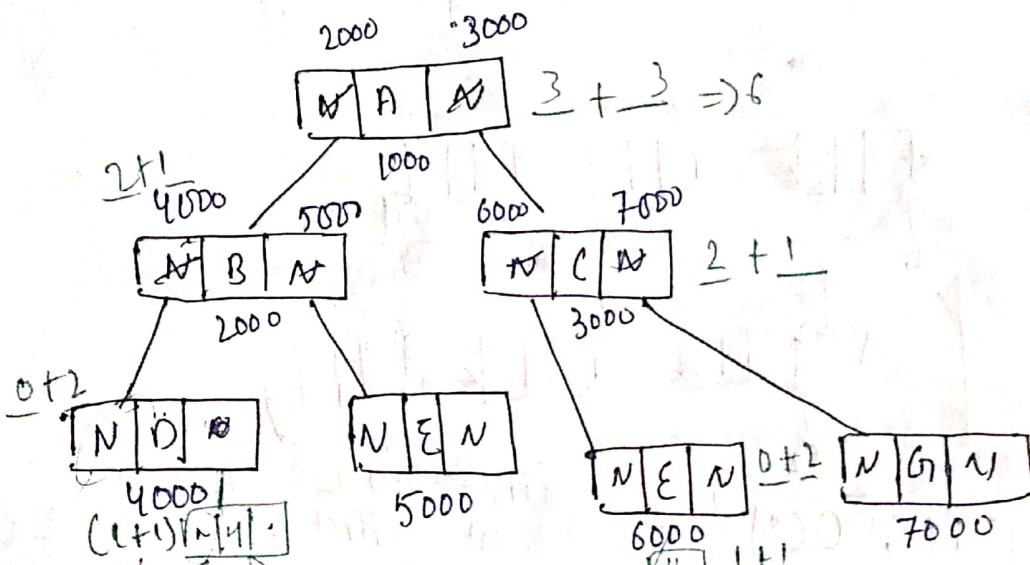 2000 3000
N A N 3 + 3 => 6
1000
2+1
4000 5000 6000 7000
N B N N C N 2 + 1
2000 3000
0+2
N D N E N
N E N 0+2 N G N
4000 5000 6000 7000
(1+1) N H
1+1